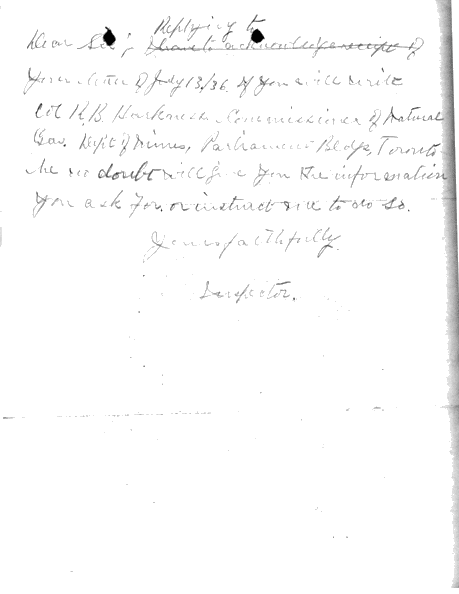 Replying to
Dear Sir; I have to acknowledge receipt of
your letter of July 13/36. If you will write
Col R.B. Harkness Commissioner of Natural
Gas. Dep't of Mines, Parliament Bldgs, Toronto
he no doubt will give you the information
you ask for. or instruct me to do so.
Yours faithfully.
Inspector.